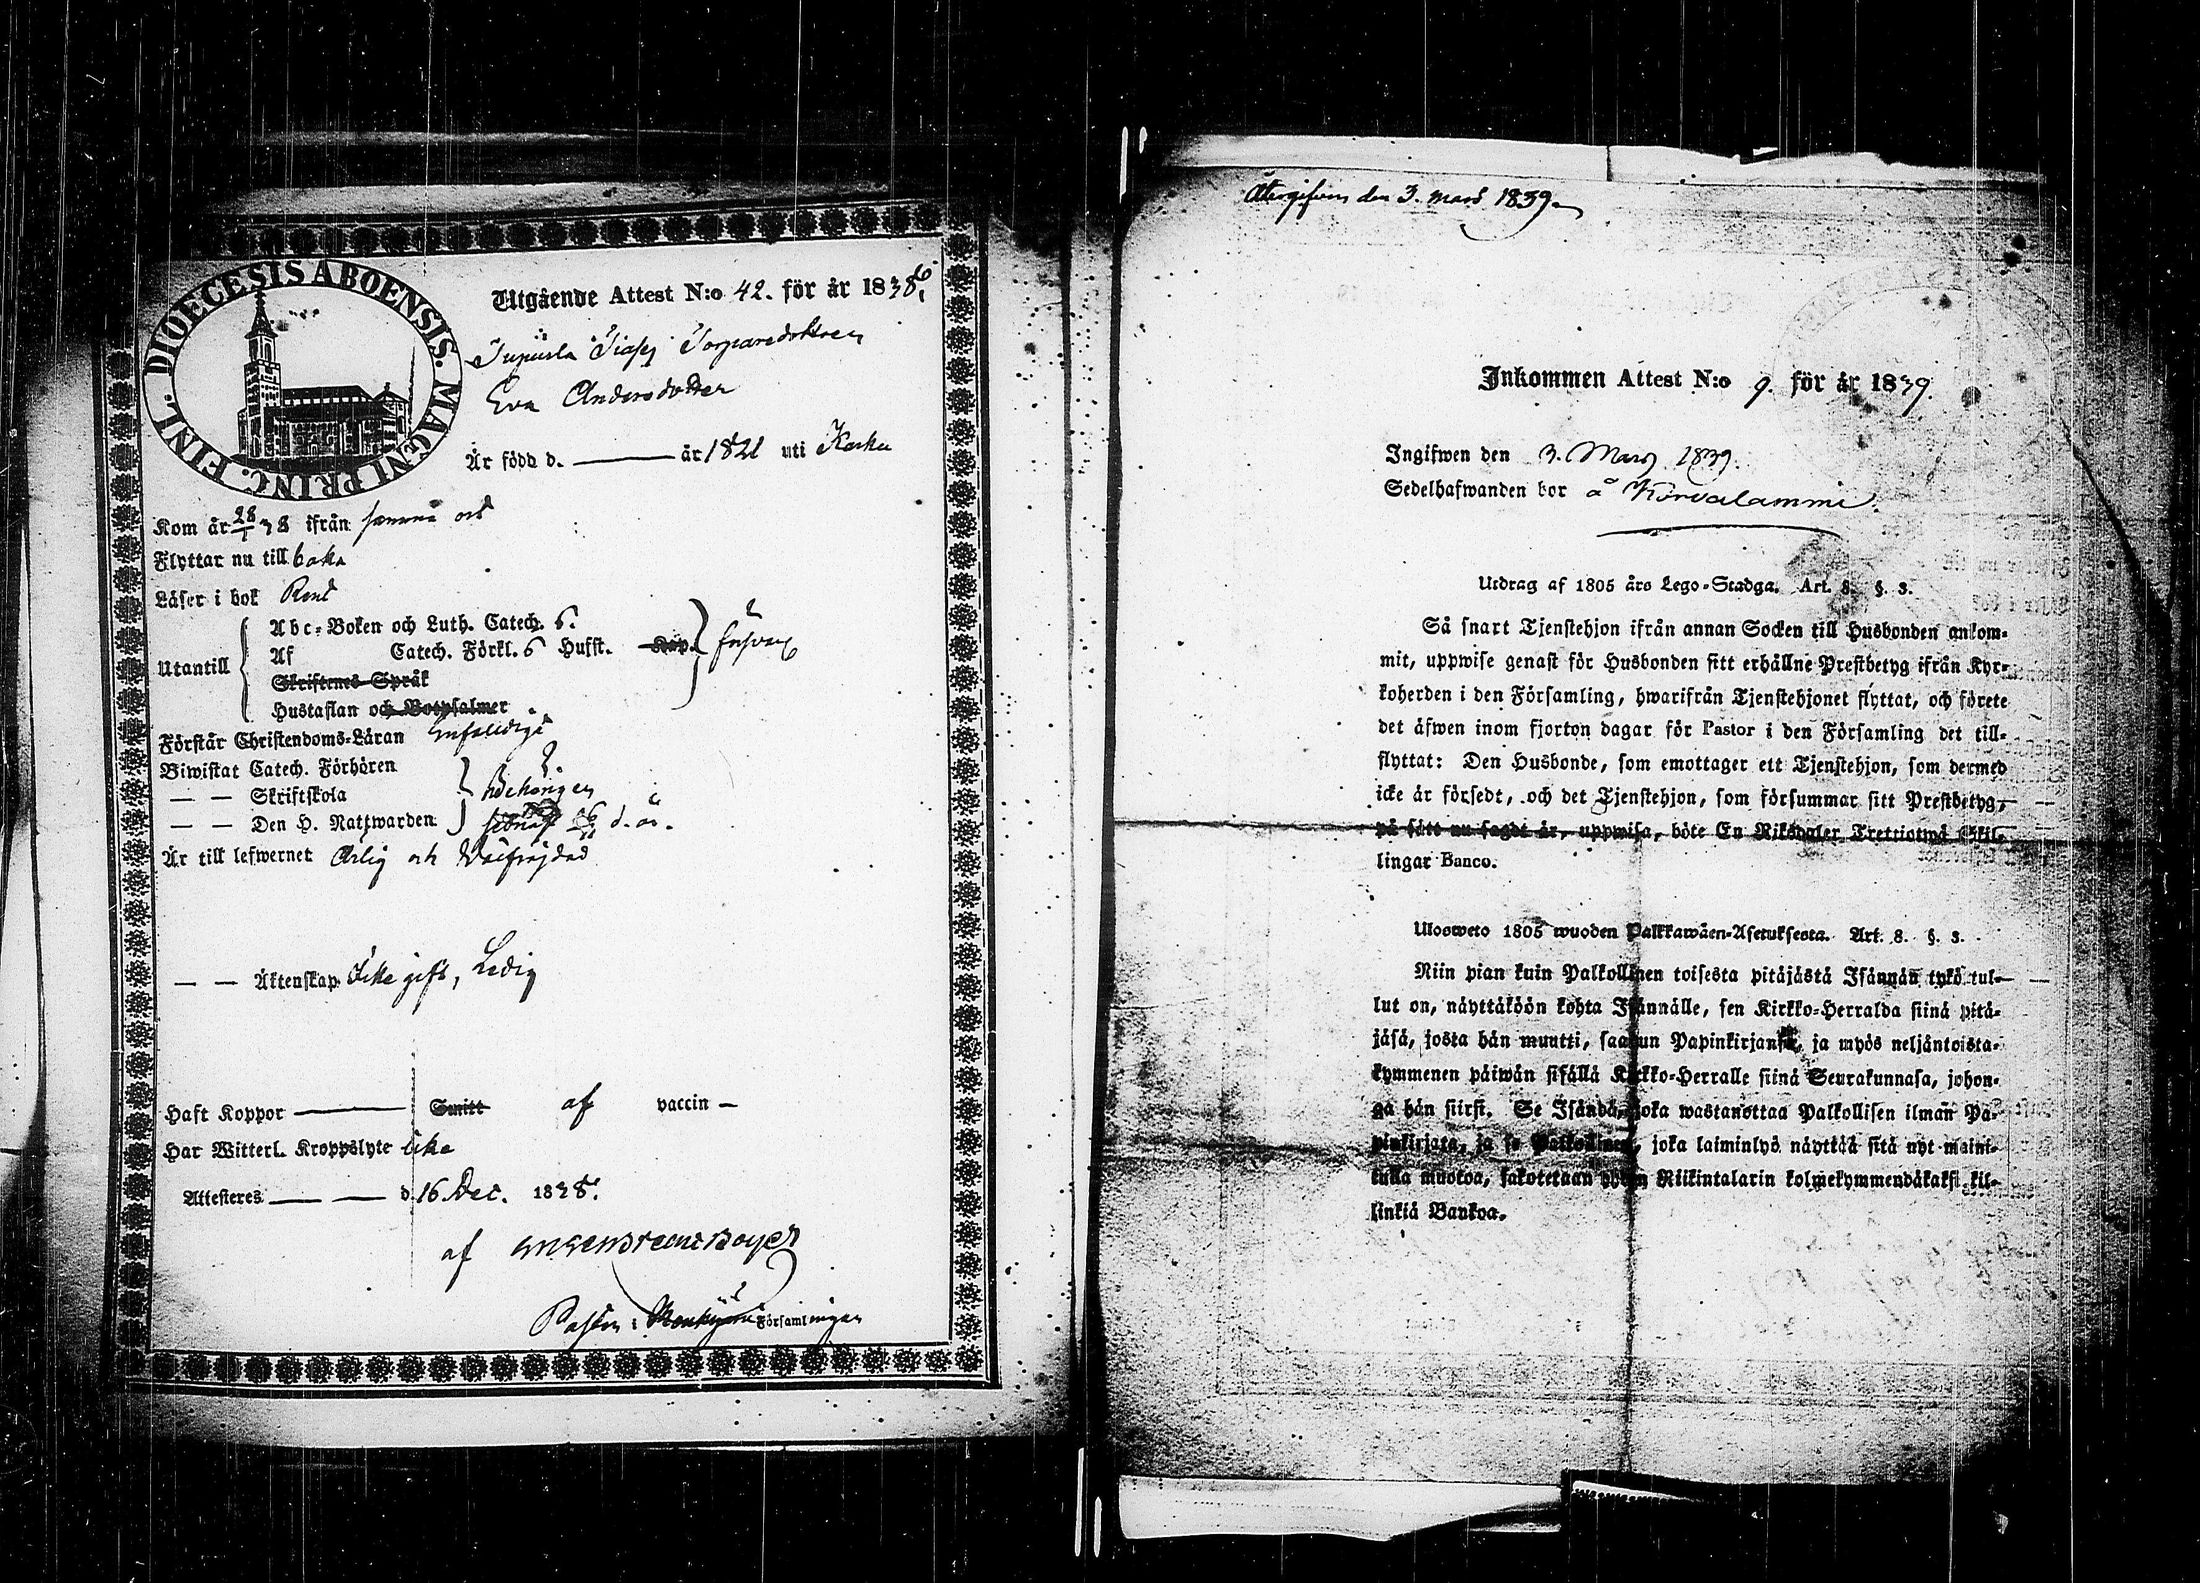 DIOECESIS ABOENSIS. MAGNI PRINC. FINL.
Utgående Attest N:o 42. för år 1838.
Torparedottren
Eva Andersdotter
Är född d. — år 1821 uti Karku
Kom år 28/1 38 ifrån samma ort
Flyttar nu till baka
Läser i bok Rent
Utantill
Abc-Boken och Luth. Catech. 6.
Af Catech. Förkl. 6 Husst. Kap.
Skriftenes Språk
Hustaflan och Botpsalmer
Förstår Christendoms-Läran Enfaldigt
Biwistat Catech. Förhören
— — Skriftskola behörigen
— — Den H. Nattwarden senast d. å.
Är till lefwernet Ärlig och Wälfrejdad
— — Äktenskap Icke gift, Ledig
Haft Koppor — Smitt af vaccin —
Har Witterl. Kroppslyte icke
Attesteres — — d. 16 Dec. 1838.
af
Pastor i Församlingen
Återgifven den 3. Mars 1839.
Inkommen Attest N:o 9. för år 1839.
Ingifwen den 3. Mars 1839.
Sedelhafwanden bor å Körvalammi.
Utdrag af 1805 års Lego-Stadga. Art. 8. §. 3.
Så snart Tjenstehjon ifrån annan Socken till Husbonden ankom-
mit, uppwise genast för Husbonden sitt erhållne Prestbetyg ifrån Kyr-
koherden i den Församling, hwarifrån Tjenstehjonet flyttat, och förete
det äfwen inom fjorton dagar för Pastor i den Församling det till-
flyttat: Den Husbonde, som emottager ett Tjenstehjon, som dermed
icke är försedt, och det Tjenstehjon, som försummar sitt Prestbetyg,
på sätt nu sagdt är, uppwisa, böte En Riksdaler Trettiotwå Skil-
lingar Banco.
Ulosweto 1805 wuoden Palkkawäen-Asetuksesta. Art. 8. §. 3.
Niin pian kuin Palkollinen toisesta pitäjästä Isännän tykö tul-
lut on, näyttäköön kohta Isännälle, sen Kirkko-Herralda siinä pitä-
jäsä, josta hän muutti, saadun Papinkirjansa, ja myös neljäntoista-
kymmenen päiwän sisällä Kirkko-Herralle siinä Seurakunnasa, johon-
ga hän siirsi. Se Isändä, joka wastanottaa Palkollisen ilman Pa-
pinkirjata, ja se Palkollinen, joka laiminlyö näyttää sitä nyt maini-
tulla muotoa, sakotetaan yhden Riikintalarin kolmekymmendäkaksi kil-
linkiä Bankoa.